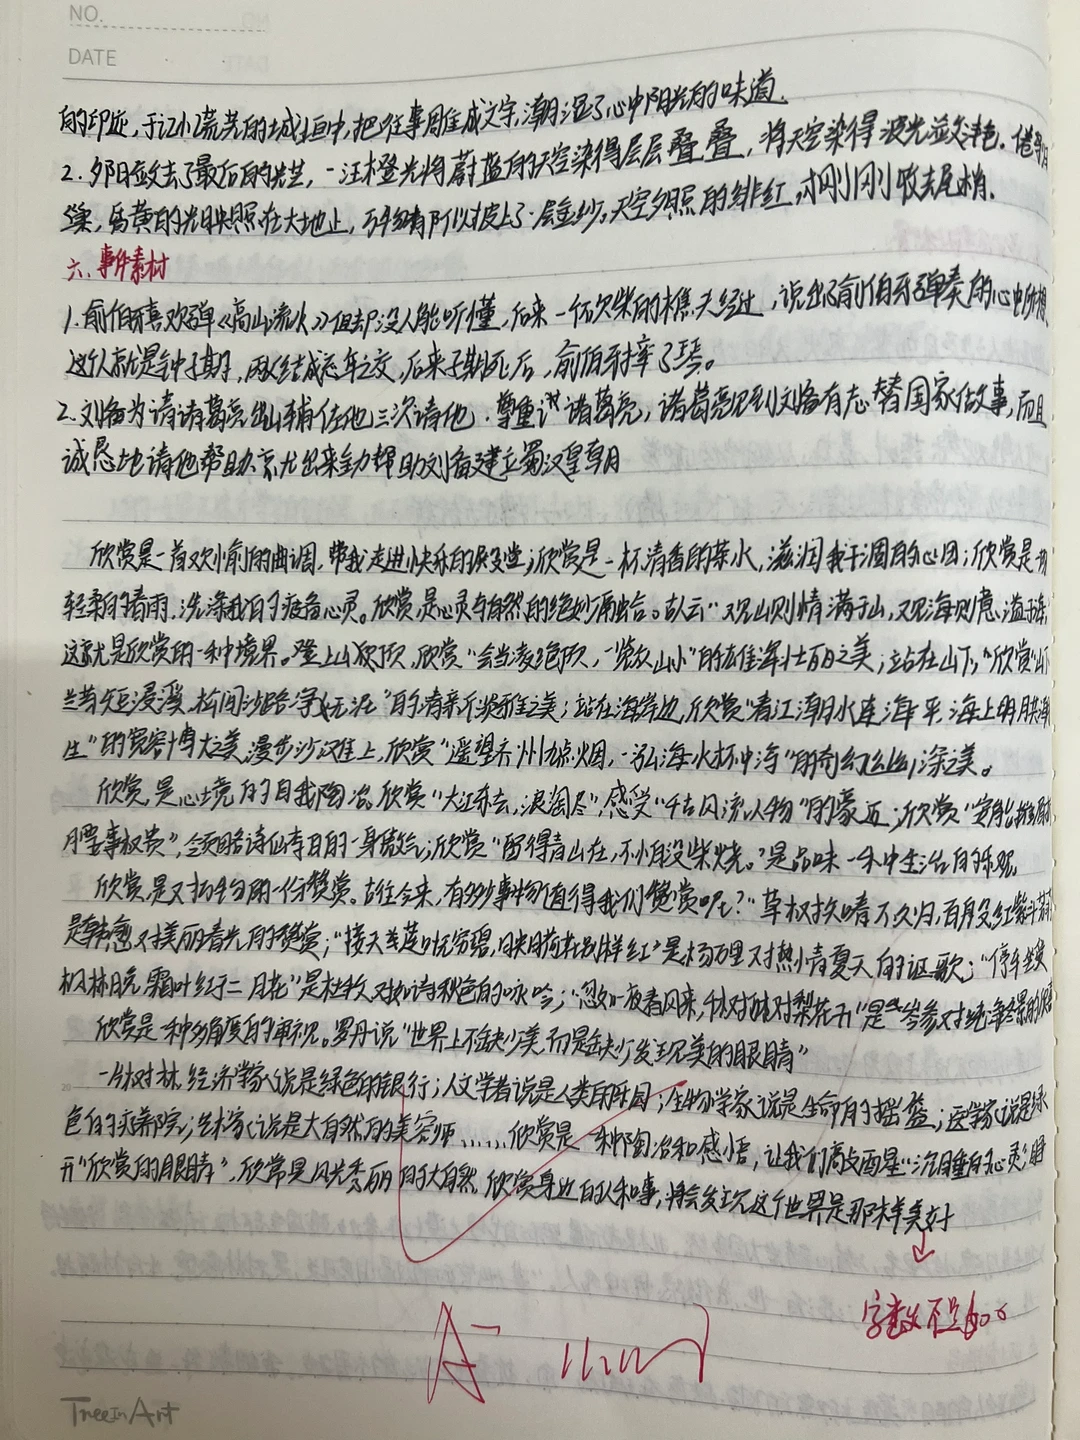 NO.
DATE
的印迹,于记忆荒芜的城垣中,把往事周佳成文字,潮湿了心中阳光的味道.
2.夕阳敛去了最后的光芒,一汪橙光将蔚蓝的天空染得层层叠叠,将天空染得波光滋
昏黄的光映照在大地上,万物有所以披上了一层金纱,天空夕照的绯红,才刚刚收去尾梢.
六、事件素材
1.俞伯牙喜欢弹《高山流水》但却没人能听懂,后来一个砍柴的樵夫经过,说出了俞伯牙弹奏的心中所想,
这个人就是钟子期,两人结成忘年之交,后来子期死后,俞伯牙摔了琴。
2.刘备为请诸葛亮出山辅佐他三次请他.尊重诸葛亮,诸葛亮见到刘备有志替国家做事,而且
诚恳地请他帮助就出来全力帮助刘备建立蜀汉皇朝
欣赏是一首欢愉的曲调,带我走进快乐的殿堂;欣赏是一杯清香的茶水,滋润我干涸的心田;欣赏是一场
轻柔的春雨,洗涤我的疲惫心灵。欣赏是心灵与自然的绝妙融合。古人云"观山则情满于山,观海则意溢于海
这就是欣赏的一种境界。登上山顶,欣赏"会当凌绝顶,一览众山小"的雄浑壮丽之美;站在山下,欣赏"山下
兰芽短浸溪,松间沙路净无泥"的清新淡雅之美;站在海岸边,欣赏"春江潮水连海平,海上明月共潮
生"的宽容博大之美,漫步沙滩上,欣赏"遥望齐州九点烟,一泓海水杯中泻"的奇幻幽深之美。
欣赏,是心境的自我陶冶。欣赏"大江东去,浪淘尽",感受"千古风流人物"的豪迈;欣赏"安能摧眉折
腰事权贵",领略诗仙李白的一身傲气;欣赏"留得青山在,不怕没柴烧。"是品味一种生活的乐观。
欣赏,是对万物的一份赞赏。古往今来,有多少事物值得我们赞赏呢?"草树知春不久归,百般红紫斗芳菲
是韩愈对美丽春光的赞赏;"接天莲叶无穷碧,映日荷花别样红"是杨万里对热情夏天的讴歌;"停车坐爱
枫林晚,霜叶红于二月花"是杜牧对如诗秋色的咏吟;"忽如一夜春风来,千树万树梨花开"是岑参对纯净冬景的
欣赏是一种多角度的审视。罗丹说"世界上不缺少美,而是缺少发现美的眼睛"
一片树林,经济学家说是绿色的银行;人文学者说是人类的乐园;生物学家说是生命的摇篮;医学家说是绿
色的疗养院;艺术家说是大自然的美容师……欣赏是一种陶冶和感悟,让我们敲醒"沉睡的心灵"睁
开"欣赏的眼睛",欣赏是风光秀丽的大自然,欣赏身边的人和事,将会发现这个世界是那样美好
字数不足600
A-
TreeInArt